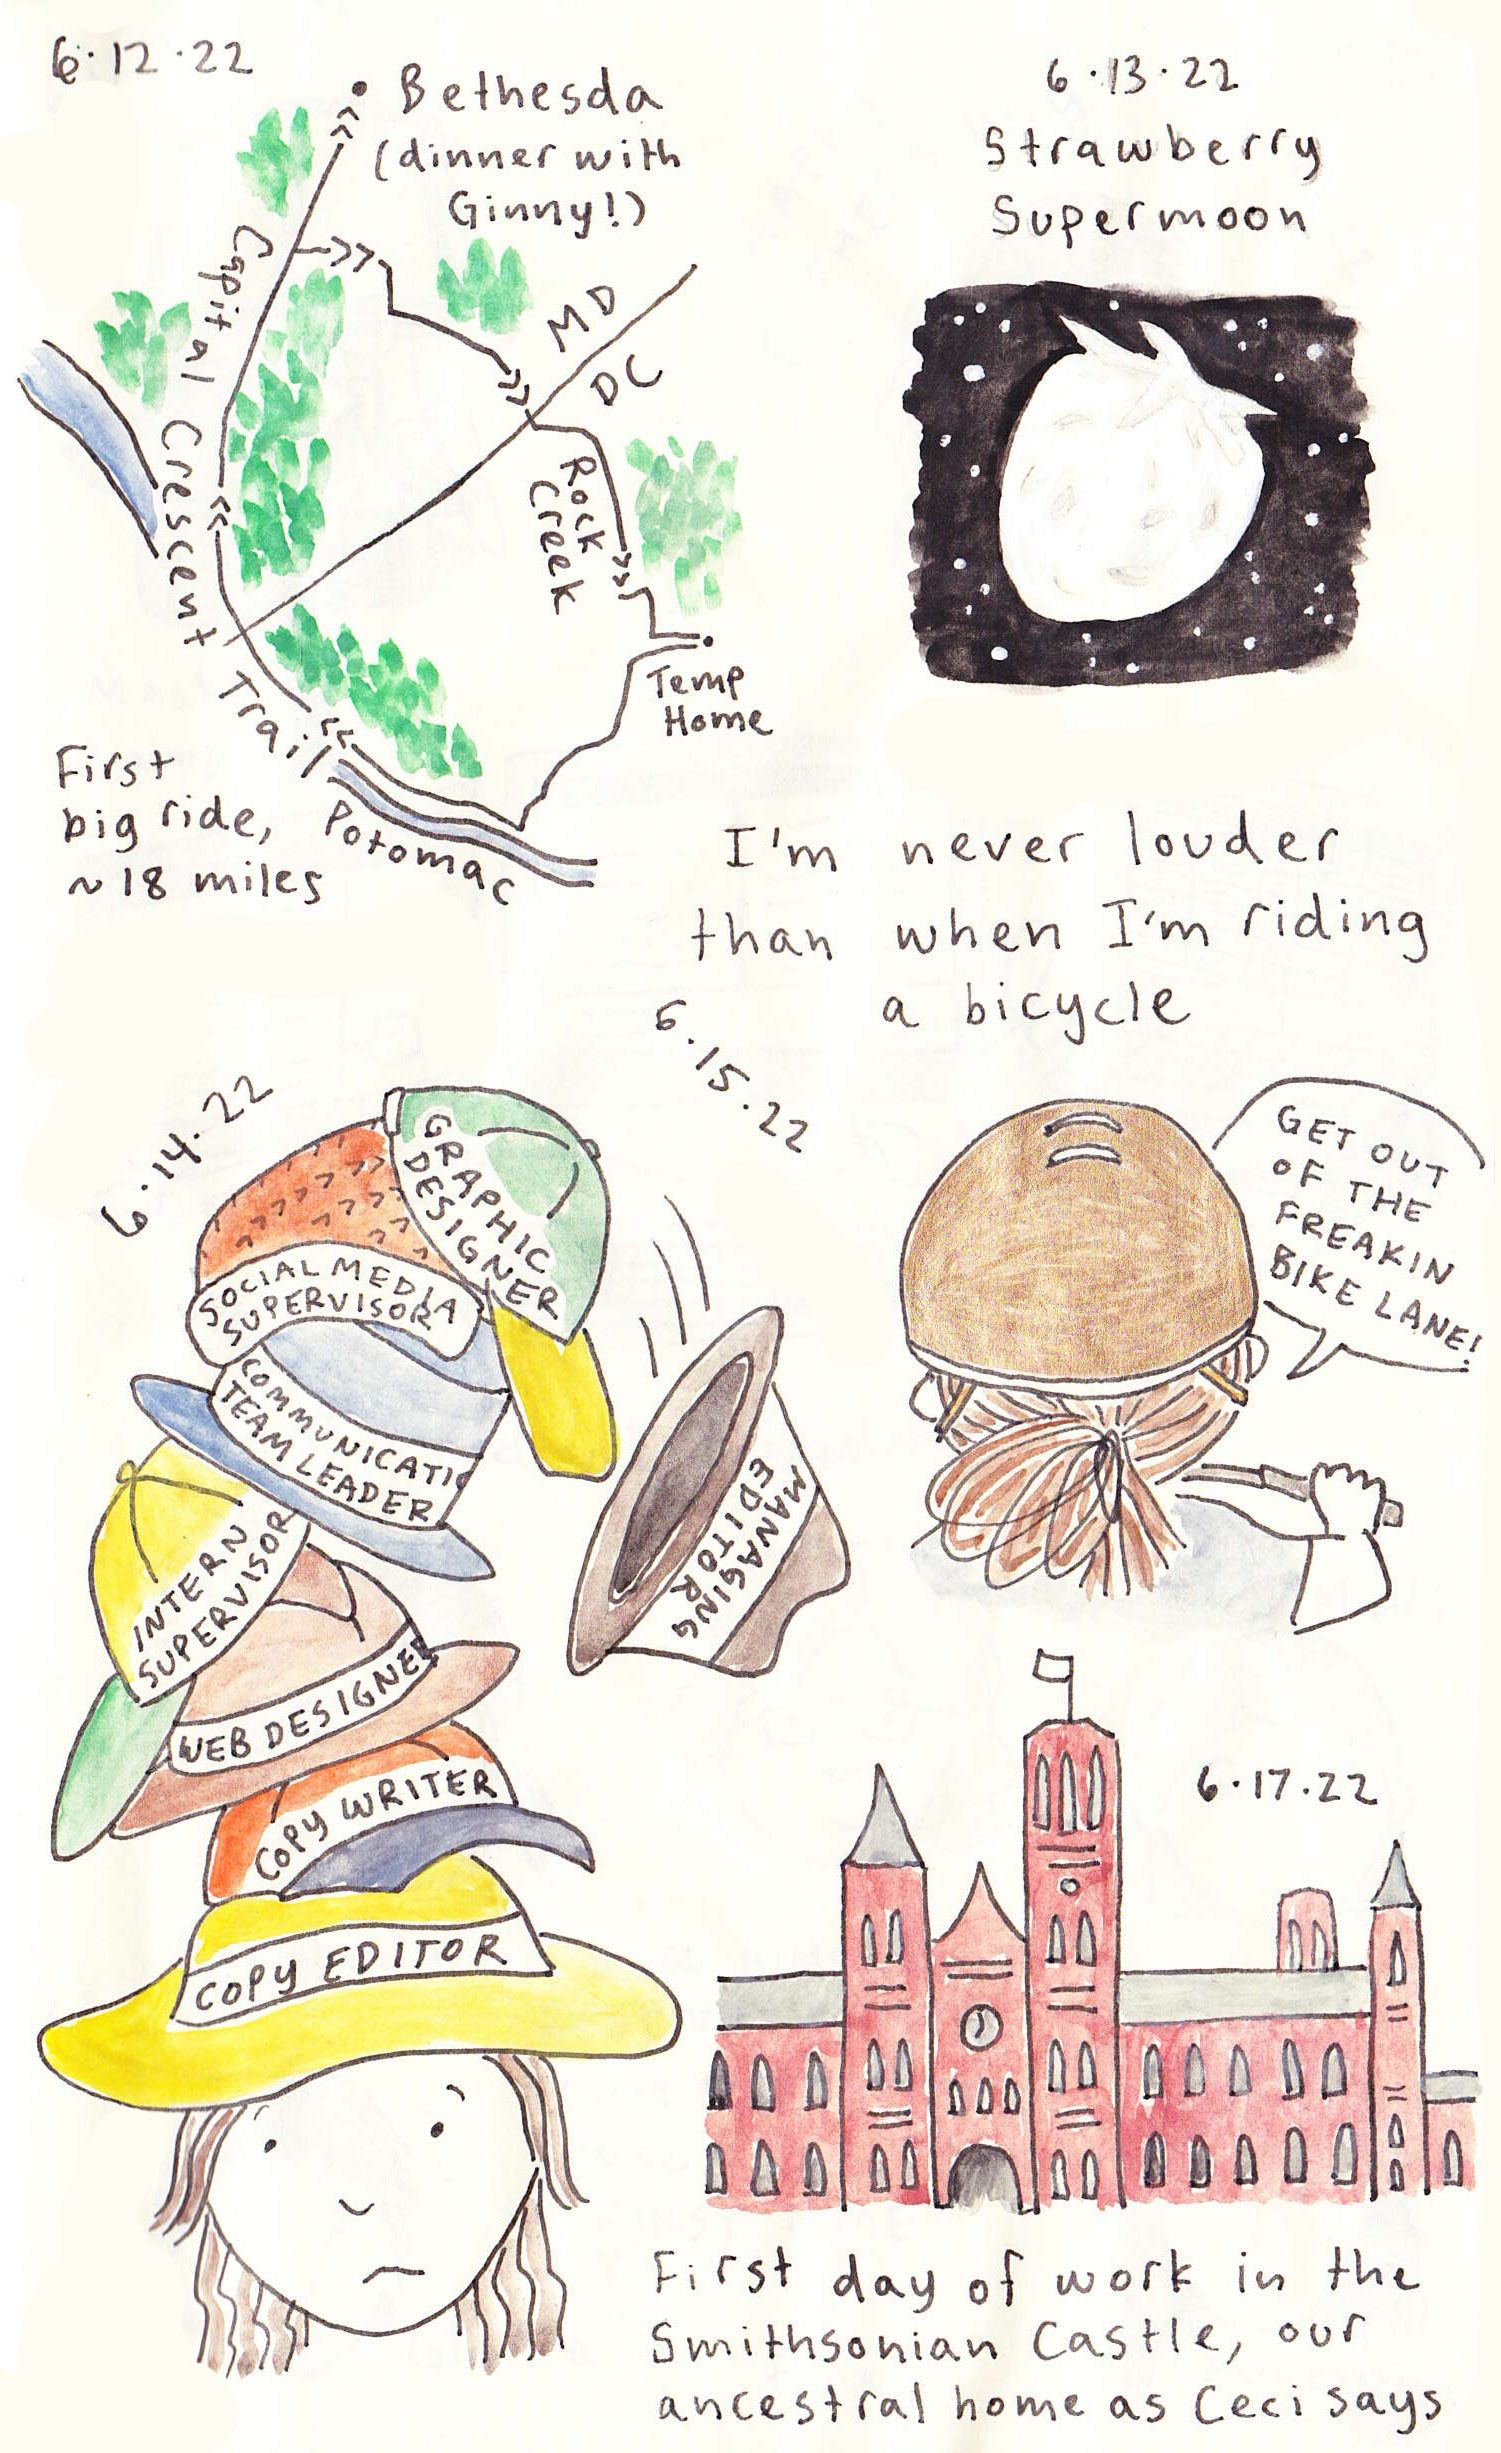 6.12.22
Bethesda
(dinner with
Ginny!)
Capital Crescent Trail
MD
DC
Rock
Creek
Temp
Home
Potomac
First
big ride,
~18 miles
6.13.22
Strawberry
Supermoon
6.14.22
GRAPHIC
DESIGNER
SOCIAL MEDIA
SUPERVISOR
COMMUNICATIO
TEAM LEADER
INTERN
SUPERVISOR
WEB DESIGNER
COPY WRITER
COPY EDITOR
MANAGING
EDITOR
6.15.22
I'm never louder
than when I'm riding
a bicycle
GET OUT
OF THE
FREAKIN
BIKE LANE!
6.17.22
First day of work in the
Smithsonian Castle, our
ancestral home as Ceci says